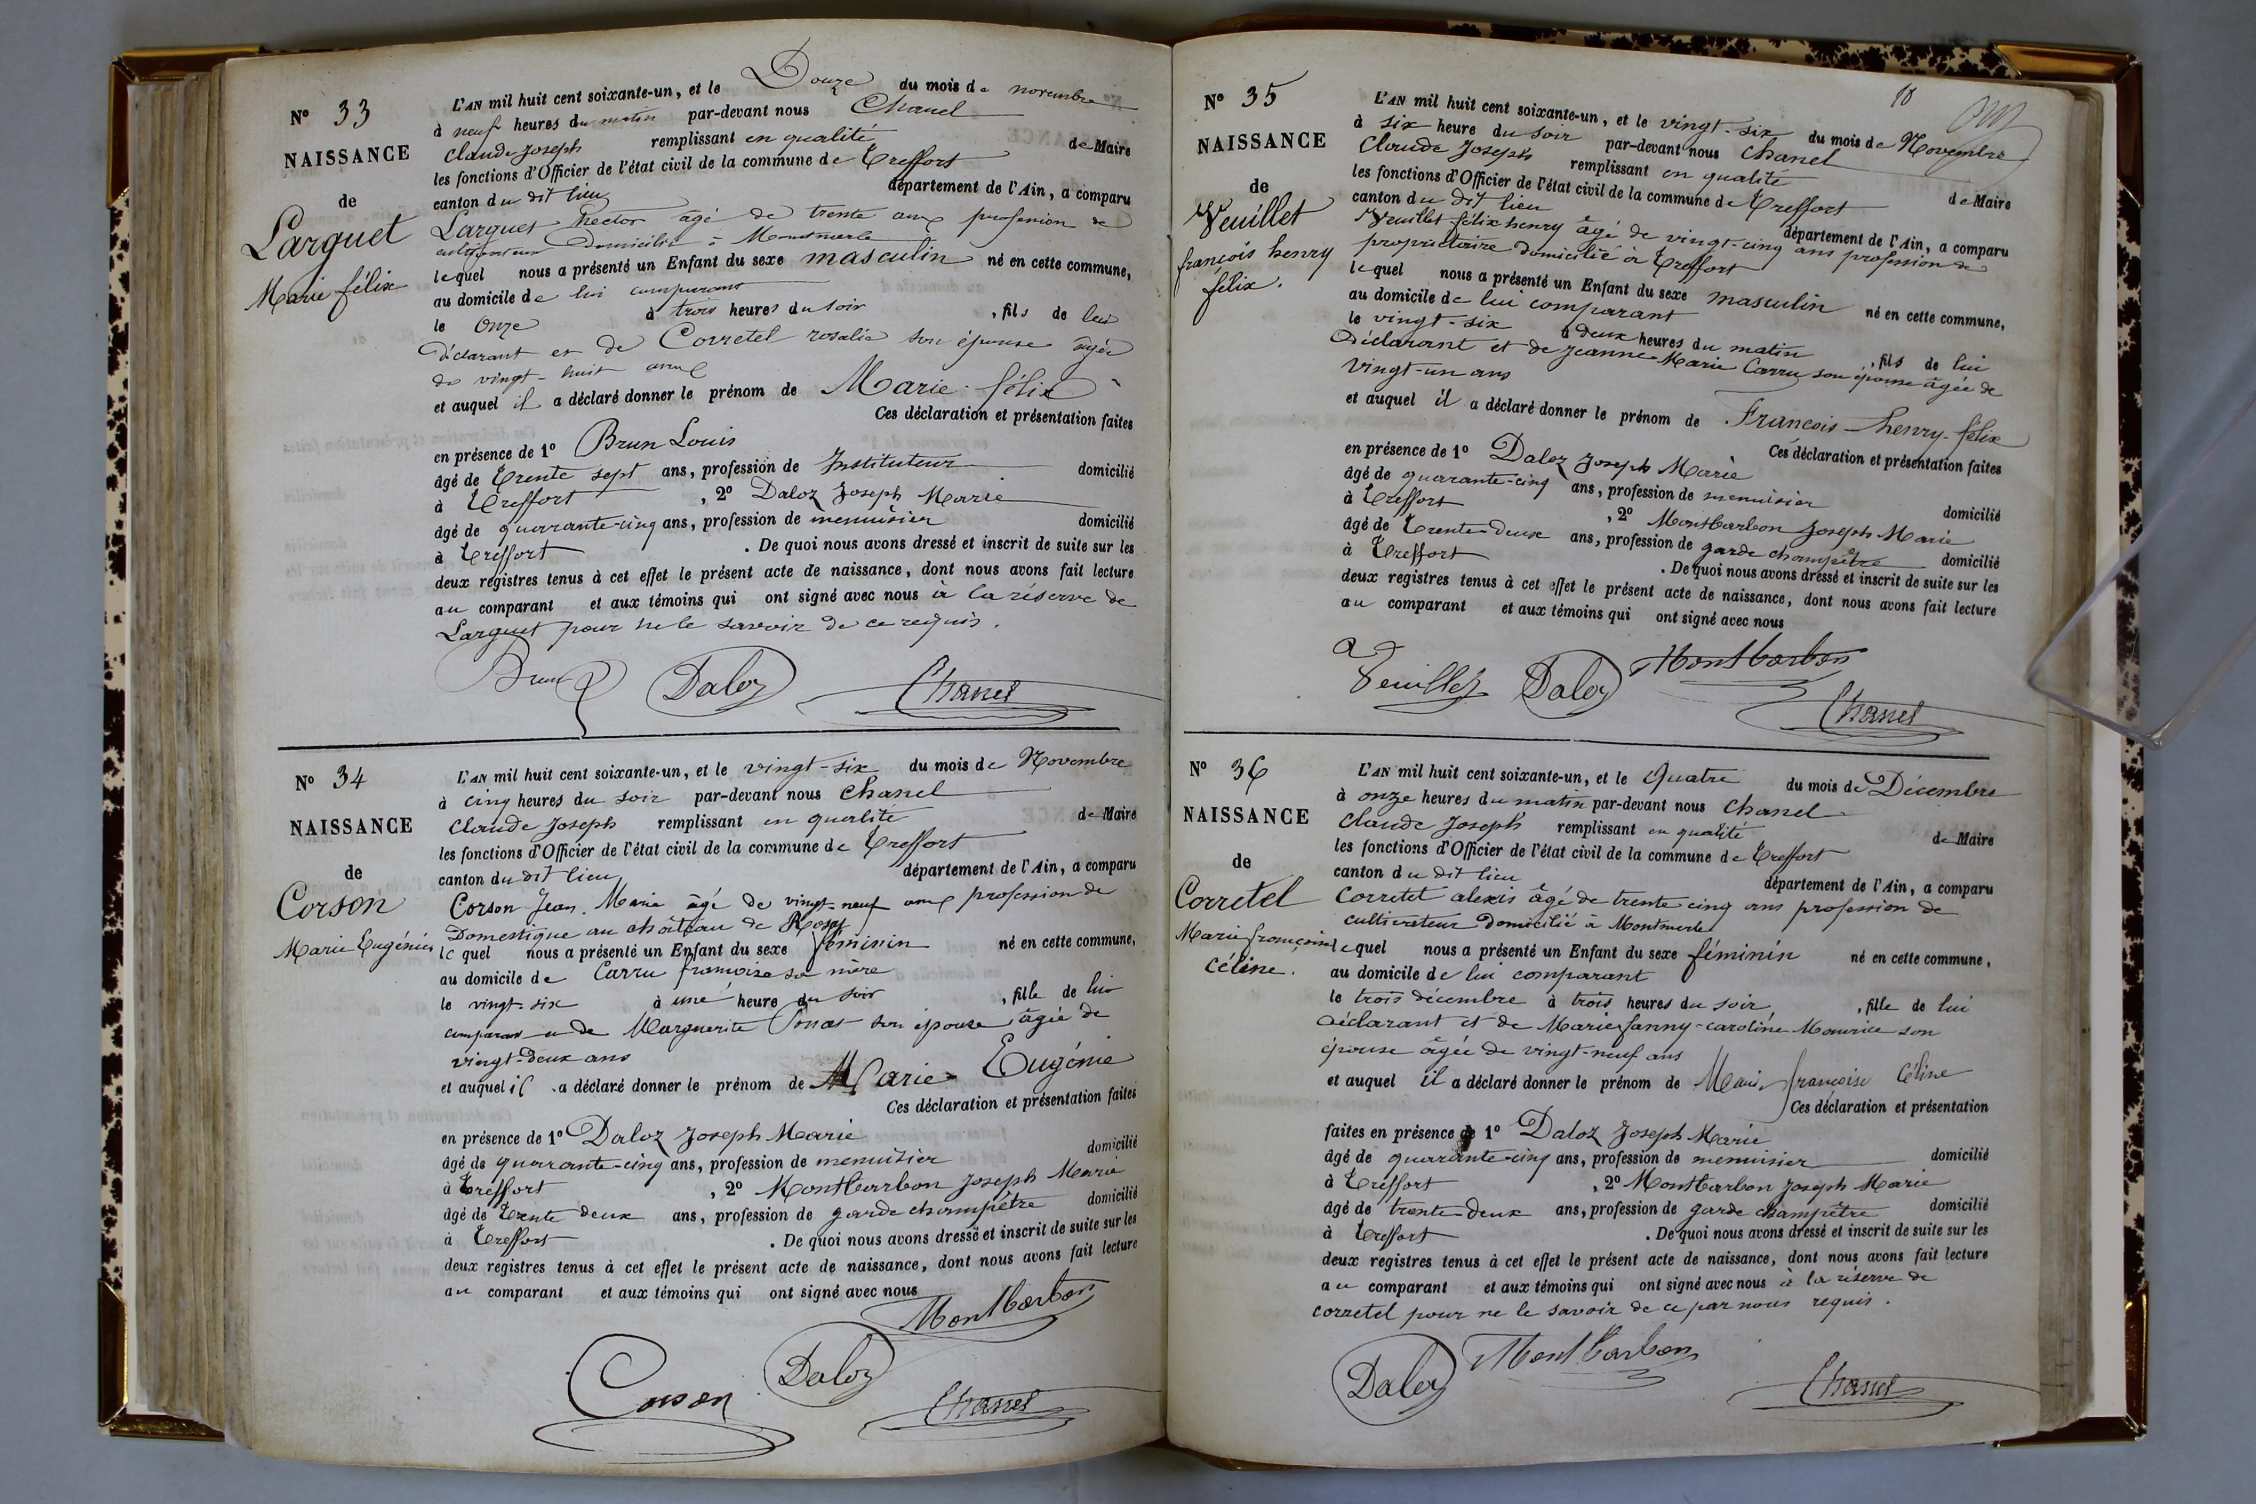 N° 33
NAISSANCE
de
Larguet
Marie félix
L'AN mil huit cent soixante-un, et le Douze du mois de novembre
à neuf heures du matin par-devant nous Chanel
Claude Joseph remplissant en qualité de Maire
les fonctions d'Officier de l'état civil de la commune de Treffort
canton du dit lieu département de l'Ain, a comparu
Larguet hector âgé de trente ans profession de
cultivateur Domicilié à Montmerle
lequel nous a présenté un Enfant du sexe masculin né en cette commune,
au domicile de lui comparant
le onze à trois heures du soir, fils de lui
déclarant et de Corretel rosalie son épouse âgée
de vingt-huit ans
et auquel il a déclaré donner le prénom de Marie félix
Ces déclaration et présentation faites
en présence de 1° Brun Louis
âgé de Trente sept ans, profession de Instituteur domicilié
à Treffort, 2° Daloz Joseph Marie
âgé de quarante-cinq ans, profession de menuisier domicilié
à Treffort. De quoi nous avons dressé et inscrit de suite sur les
deux registres tenus à cet effet le présent acte de naissance, dont nous avons fait lecture
au comparant et aux témoins qui ont signé avec nous à la réserve de
Larguet pour ne le savoir de ce requis.
Brun Daloz Chanel
N° 34
NAISSANCE
de
Corson
Marie Eugénie
L'AN mil huit cent soixante-un, et le vingt-six du mois de Novembre
à cinq heures du soir par-devant nous Chanel
Claude Joseph remplissant en qualité de Maire
les fonctions d'Officier de l'état civil de la commune de Treffort
canton du dit lieu département de l'Ain, a comparu
Corson Jean Marie âgé de vingt-neuf ans profession de
Domestique au château de Rosy
lequel nous a présenté un Enfant du sexe féminin né en cette commune,
au domicile de Carru françoise sa mère
le vingt-six à une heure du soir, fille de lui
comparant et de Marguerite son épouse âgée de
vingt-deux ans
et auquel il a déclaré donner le prénom de Marie Eugénie
Ces déclaration et présentation faites
en présence de 1° Daloz Joseph Marie
âgé de quarante-cinq ans, profession de menuisier domicilié
à Treffort, 2° Montbarbon Joseph Marie
âgé de Trente deux ans, profession de garde champêtre domicilié
à Treffort. De quoi nous avons dressé et inscrit de suite sur les
deux registres tenus à cet effet le présent acte de naissance, dont nous avons fait lecture
au comparant et aux témoins qui ont signé avec nous
Montbarbon
Corson Daloz Chanel
10
N° 35
NAISSANCE
de
Veuillet
françois henry
félix.
L'AN mil huit cent soixante-un, et le vingt-six du mois de Novembre
à six heure du soir par-devant nous Chanel
Claude Joseph remplissant en qualité de Maire
les fonctions d'Officier de l'état civil de la commune de Treffort
canton du dit lieu département de l'Ain, a comparu
Veuillet félix henry âgé de vingt-cinq ans profession de
propriétaire domicilié à Treffort
lequel nous a présenté un Enfant du sexe masculin né en cette commune,
au domicile de lui comparant
le vingt-six à deux heures du matin, fils de lui
Déclarant et de Jeanne Marie Carru son épouse âgée de
vingt-un ans
et auquel il a déclaré donner le prénom de Francois henry félix
Ces déclaration et présentation faites
en présence de 1° Daloz Joseph Marie
âgé de quarante-cinq ans, profession de menuisier domicilié
à Treffort, 2° Montbarbon Joseph Marie
âgé de Trente-Deux ans, profession de garde champêtre domicilié
à Treffort. De quoi nous avons dressé et inscrit de suite sur les
deux registres tenus à cet effet le présent acte de naissance, dont nous avons fait lecture
au comparant et aux témoins qui ont signé avec nous
Veuillet Daloz Montbarbon
Chanel
N° 36
NAISSANCE
de
Corretel
Marie françoise
Céline.
L'AN mil huit cent soixante-un, et le Quatre du mois de Décembre
à onze heures du matin par-devant nous Chanel
Claude Joseph remplissant en qualité de Maire
les fonctions d'Officier de l'état civil de la commune de Treffort
canton du dit lieu département de l'Ain, a comparu
Corretel alexis âgé de trente cinq ans profession de
cultivateur Domicilié à Montmerle
lequel nous a présenté un Enfant du sexe féminin né en cette commune,
au domicile de lui comparant
le trois décembre à trois heures du soir, fille de lui
Déclarant et de Marie fanny-caroline Maurice son
épouse âgée de vingt-neuf ans
et auquel il a déclaré donner le prénom de Marie françoise Céline
Ces déclaration et présentation
faites en présence de 1° Daloz Joseph Marie
âgé de quarante-cinq ans, profession de menuisier domicilié
à Treffort, 2° Montbarbon Joseph Marie
âgé de trente-deux ans, profession de garde champêtre domicilié
à Treffort. De quoi nous avons dressé et inscrit de suite sur les
deux registres tenus à cet effet le présent acte de naissance, dont nous avons fait lecture
au comparant et aux témoins qui ont signé avec nous à la réserve de
corretel pour ne le savoir de ce par nous requis.
Daloz Montbarbon Chanel